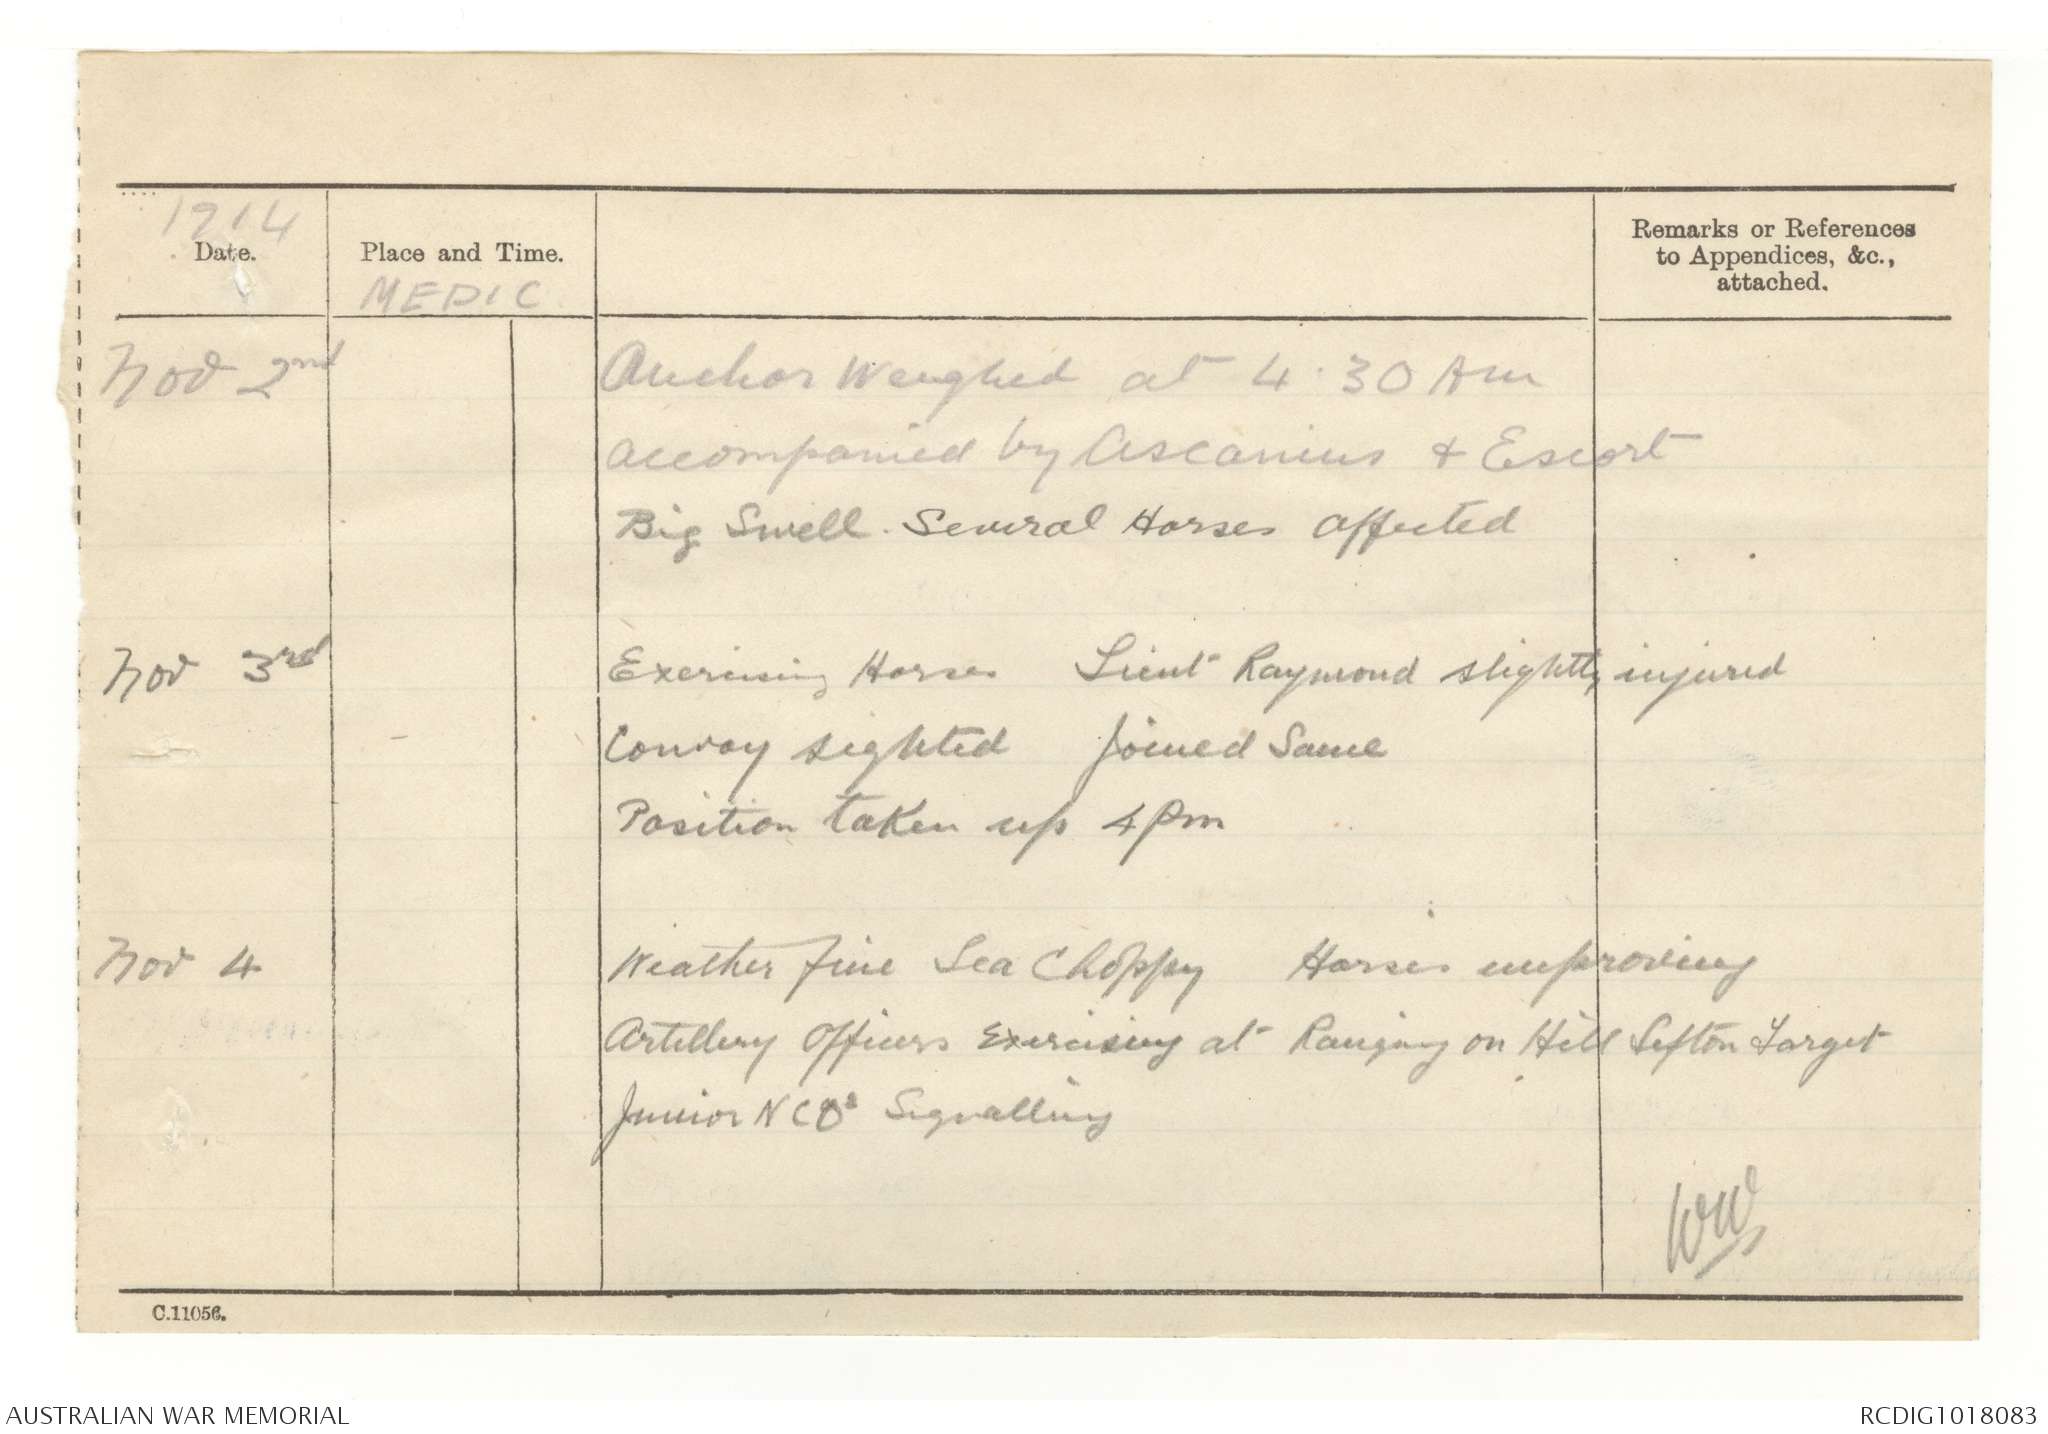 1914
Date.
Place and Time.
MEDIC
Remarks or References
to Appendices, &c.,
attached.
Nov 2nd
Anchor Weighed at 4.30 Am
accompanied by Ascanius & Escort
Big Swell. Several Horses affected
Nov 3rd
Exercising Horses Lieut Raymond slightly injured
Convoy sighted Joined Same
Position taken up 4 pm
Nov 4
Weather fine Sea Choppy Horses improving
Artillery Officers Exercising at Ranging on Hill Sefton Target
Junior NCOs Signalling
WW
C.11056.
AUSTRALIAN WAR MEMORIAL
RCDIG1018083